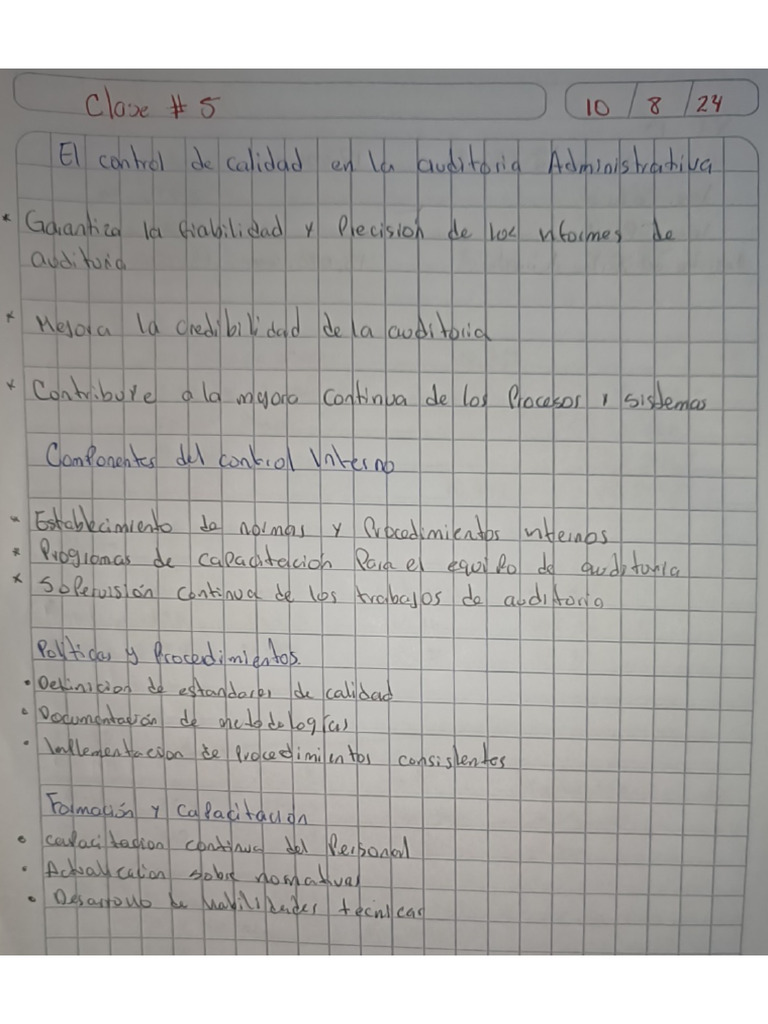 Clase # 5
10 / 8 / 24
El control de calidad en la auditoria Administrativa
* Garantiza la fiabilidad y Precision de los nformes de
auditoria
* Mejora la credibilidad de la auditoria
* Contribuye a la mejora continua de los Procesos y sistemas
Componentes del control Interno
* Establecimiento de normas y Procedimientos internos
* Programas de capacitacion Para el equipo de auditoria
* Supervisión continua de los trabajos de auditoria
Politicas y Procedimientos.
• Definicion de estandares de calidad
• Documentación de metodolog(as)
• Implementacion de Procedimientos consistentes
Formación y Capacitación
• capacitacion continua del Personal
• Actualicacion sobre normativas
• Desarrollo de habilidades tecnicas